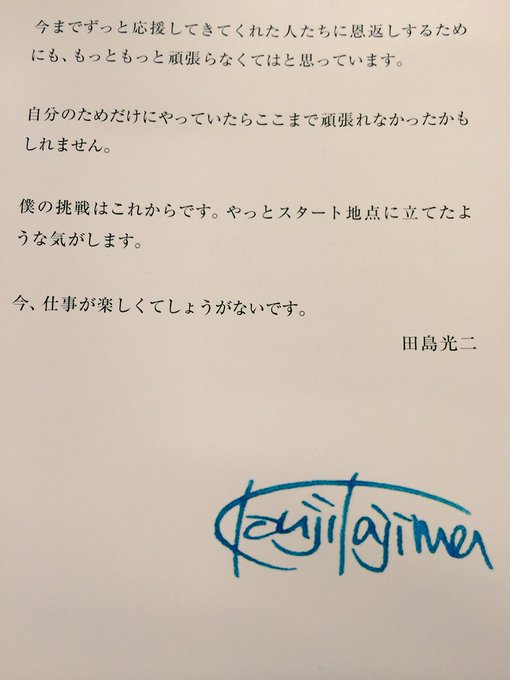 今までずっと応援してきてくれた人たちに恩返しするため
にも、もっともっと頑張らなくてはと思っています。
自分のためだけにやっていたらここまで頑張れなかったかも
しれません。
僕の挑戦はこれからです。やっとスタート地点に立てたよ
うな気がします。
今、仕事が楽しくてしょうがないです。
田島光二
Kouji Tajima